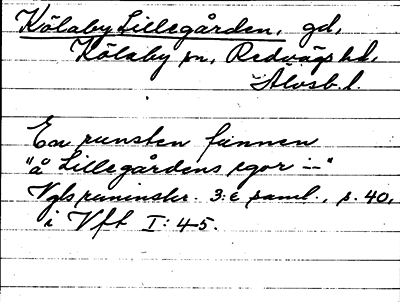 Kölaby Lillegården, gd,
Kölaby sn, Redvägs hd,
Älvsb. l.
En runsten finnen
"å Lillegårdens egor –"
Vgls runinskr. 3:e saml., s. 40,
i Vft I: 4-5.